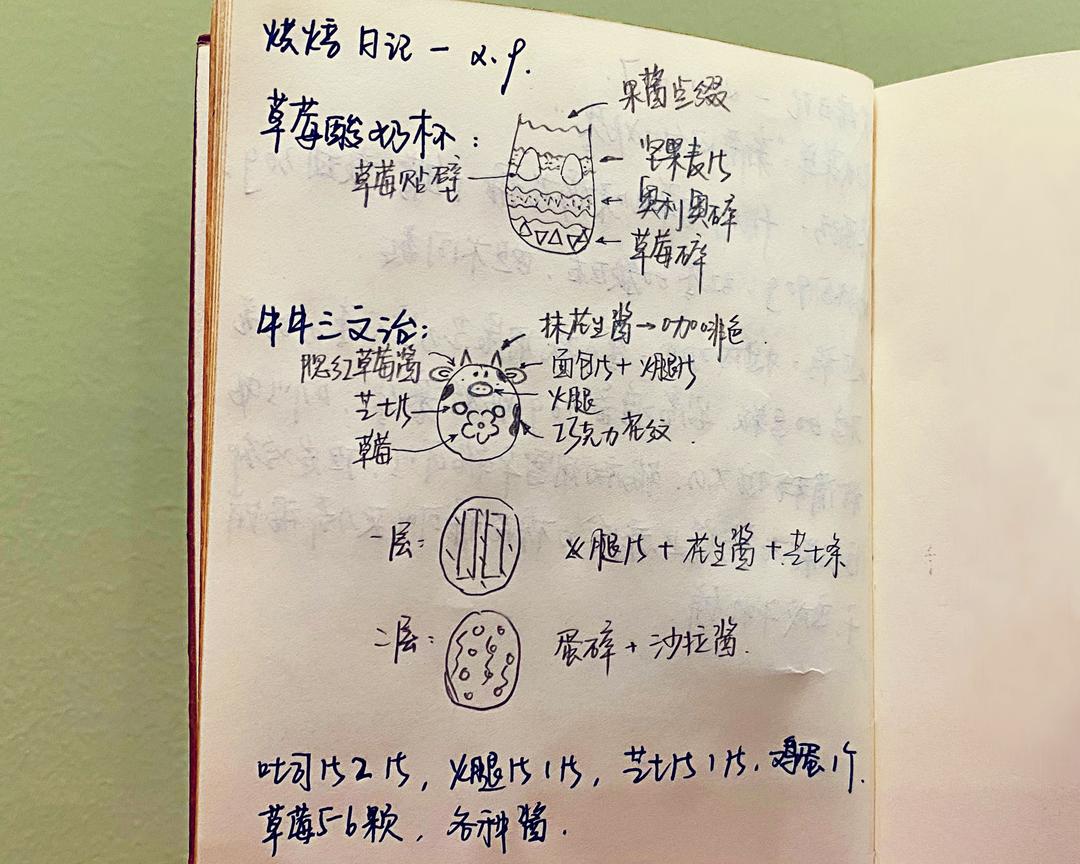 烘焙日记 - 2.9.
草莓酸奶杯：
果酱点缀
坚果麦片
草莓贴壁
奥利奥碎
草莓碎
牛牛三文治：
抹花生酱→咖啡色.
腮红草莓酱
面包片+火腿片
芝士片
火腿
巧克力花纹.
草莓
一层：
火腿片+花生酱+芝士条
二层：
蛋碎+沙拉酱.
吐司片2片，火腿片1片，芝士片1片，鸡蛋1个.
草莓5-6颗，各种酱.